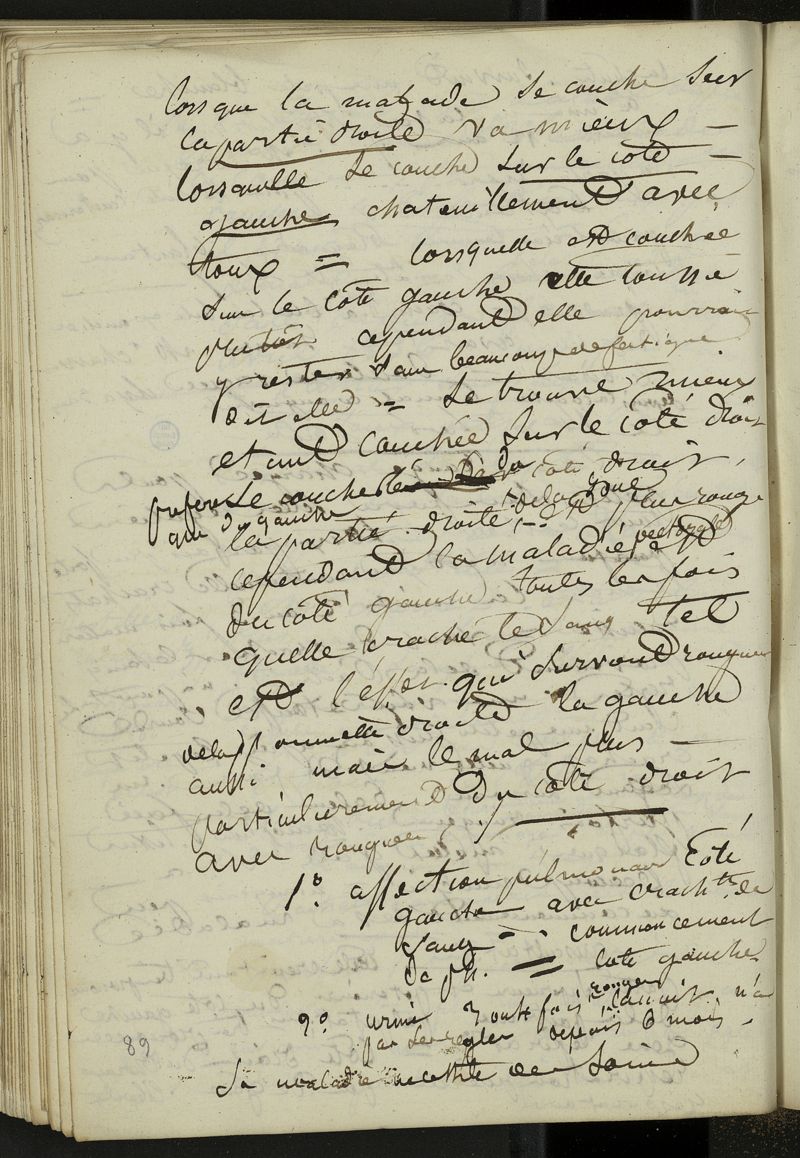 lorsque la malade se couche sur
la partie droite va mieux —
lorsqu'elle se couche sur le coté —
gauche chatouillement avec
toux = lorsquelle est couchée
sur le coté gauche elle tousse
plutôt cependant elle pourrait
y rester sans beaucoup de fatigue
dit elle = se trouve mieux
etant couchée sur le coté droit
prefere se coucher du coté droit,
que du gauche
la partie droite de la joue est plus rouge
cependant la maladie est
du coté gauche toutes les fois
quelle crache le sang tel
est l'effet qui survient rougeur
de la pommette droite la gauche
aussi mais le mal plus —
particulierement du coté droit
avec rougeur
1° affection pulmonaire coté
gauche avec cracht. de
sang — commencement
de ph. = coté gauche
2° urine 3 ou 4 fois la nuit n'a
pas ses regles depuis 6 mois —
Sa maladie necessite des soins
89